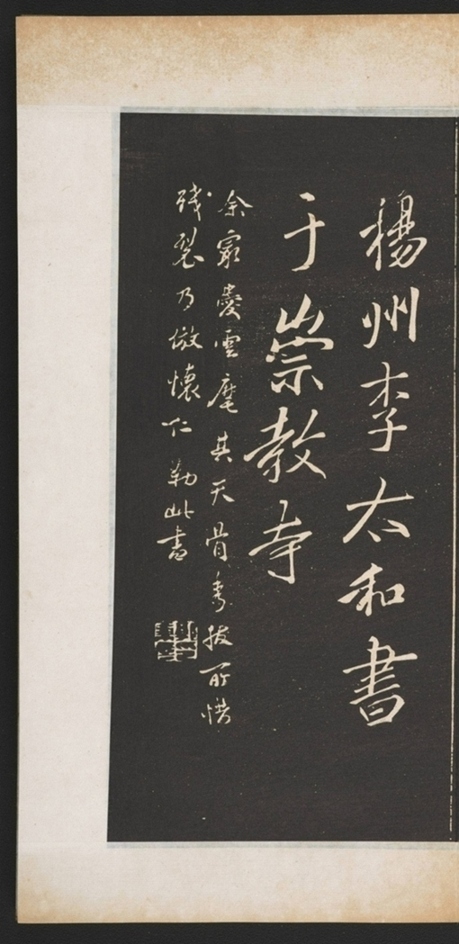 楊州李太和書
于崇教寺
余最愛雲麾其天骨秀拔所惜
殘裂乃倣懷仁勒此書